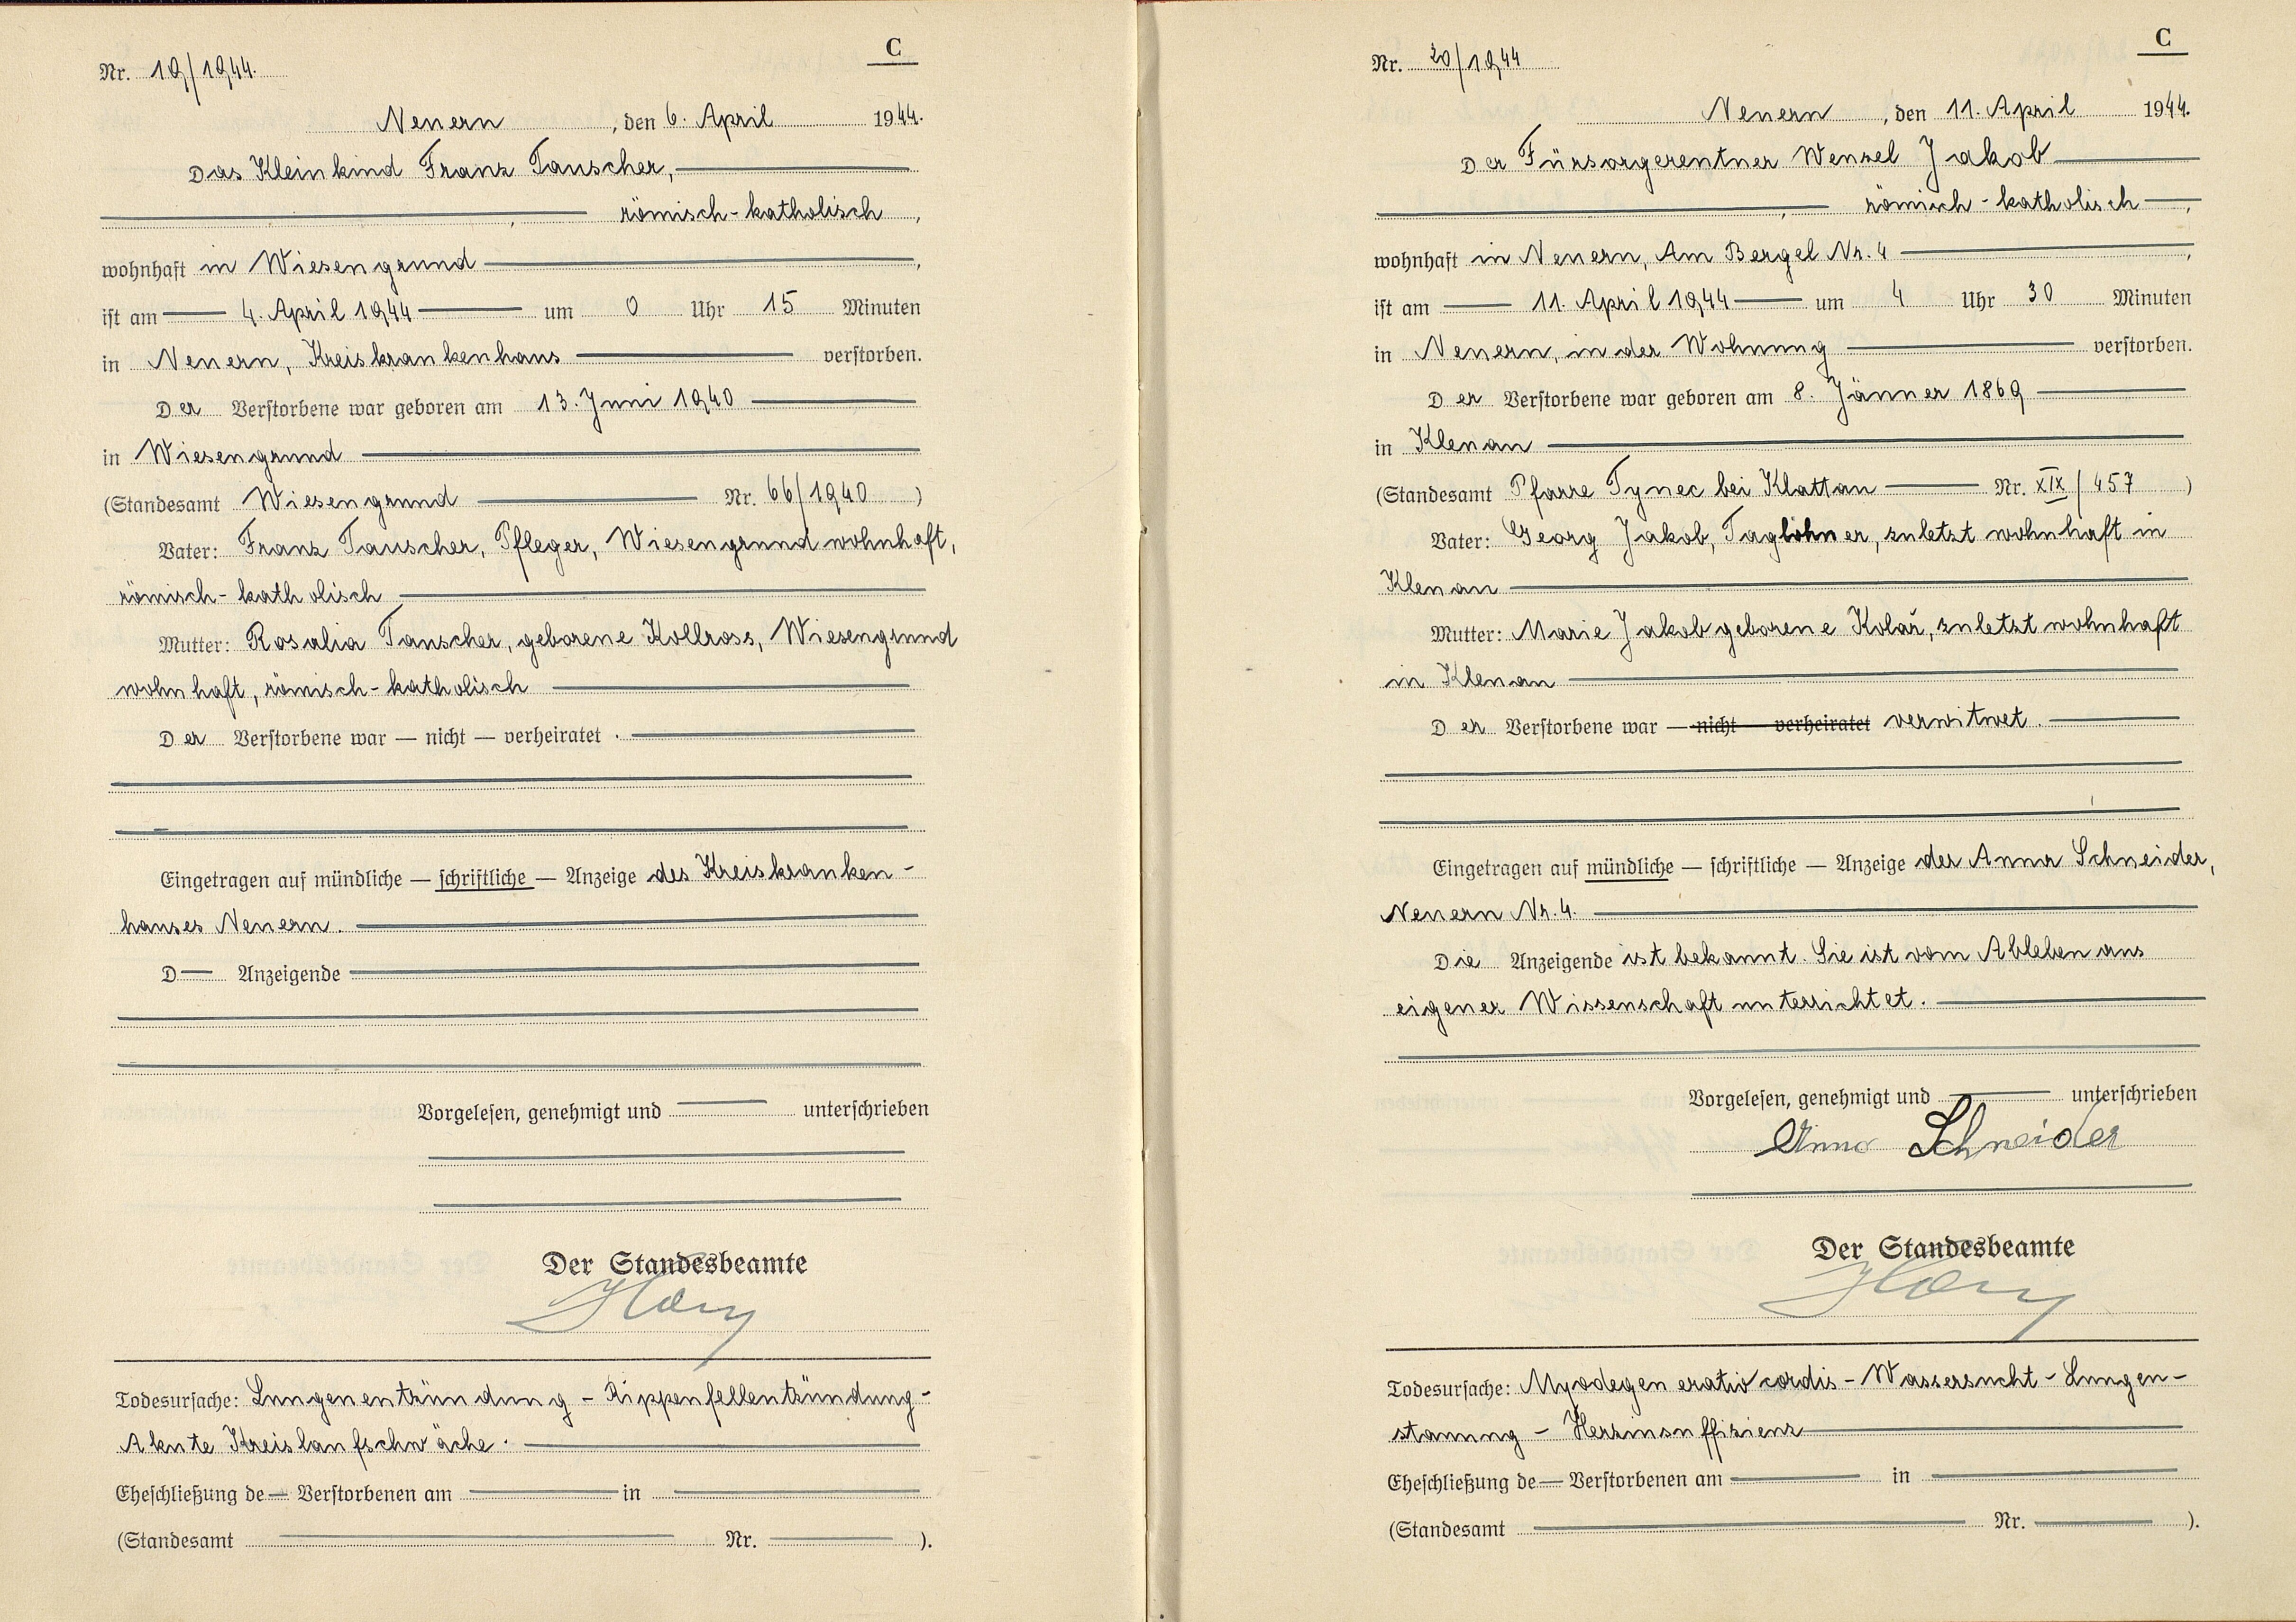 C
Nr. 19/1944.
Neuern, den 6. April 1944.
Das Kleinkind Franz Tauscher,
, römisch-katholisch,
wohnhaft in Wiesengrund,
ist am 4. April 1944 um 0 Uhr 15 Minuten
in Neuern, Kreiskrankenhaus verstorben.
Der Verstorbene war geboren am 13. Juni 1940
in Wiesengrund
(Standesamt Wiesengrund Nr. 66/1940)
Vater: Franz Tauscher, Pfleger, Wiesengrund wohnhaft,
römisch-katholisch
Mutter: Rosalia Tauscher, geborene Kollross, Wiesengrund
wohnhaft, römisch-katholisch
Der Verstorbene war — nicht — verheiratet.
Eingetragen auf mündliche — schriftliche — Anzeige des Kreiskranken-
hauses Neuern.
D— Anzeigende
Vorgelesen, genehmigt und — unterschrieben
Der Standesbeamte
Todesursache: Lungenentzündung - Rippenfellentzündung -
Akute Kreislaufschwäche.
Eheschließung de— Verstorbenen am — in —
(Standesamt — Nr. —).
C
Nr. 20/1944
Neuern, den 11. April 1944.
Der Fürsorgerentner Wenzel Jakob
, römisch-katholisch —,
wohnhaft in Neuern, Am Bergel Nr. 4,
ist am 11. April 1944 um 4 Uhr 30 Minuten
in Neuern, in der Wohnung verstorben.
Der Verstorbene war geboren am 8. Jänner 1869
in Klenau
(Standesamt Pfarre Tynec bei Klattau Nr. XIX/457)
Vater: Georg Jakob, Taglöhner, zuletzt wohnhaft in
Klenau
Mutter: Marie Jakob geborene Kolař, zuletzt wohnhaft
in Klenau
Der Verstorbene war — nicht — verheiratet verwitwet.
Eingetragen auf mündliche — schriftliche — Anzeige der Anna Schneider,
Neuern Nr. 4.
Die Anzeigende ist bekannt. Sie ist vom Ableben aus
eigener Wissenschaft unterrichtet.
Vorgelesen, genehmigt und — unterschrieben
Anna Schneider
Der Standesbeamte
Todesursache: Myodegeneratio cordis - Wassersucht - Lungen-
stauung - Herzinsuffizienz
Eheschließung de— Verstorbenen am — in —
(Standesamt — Nr. —).